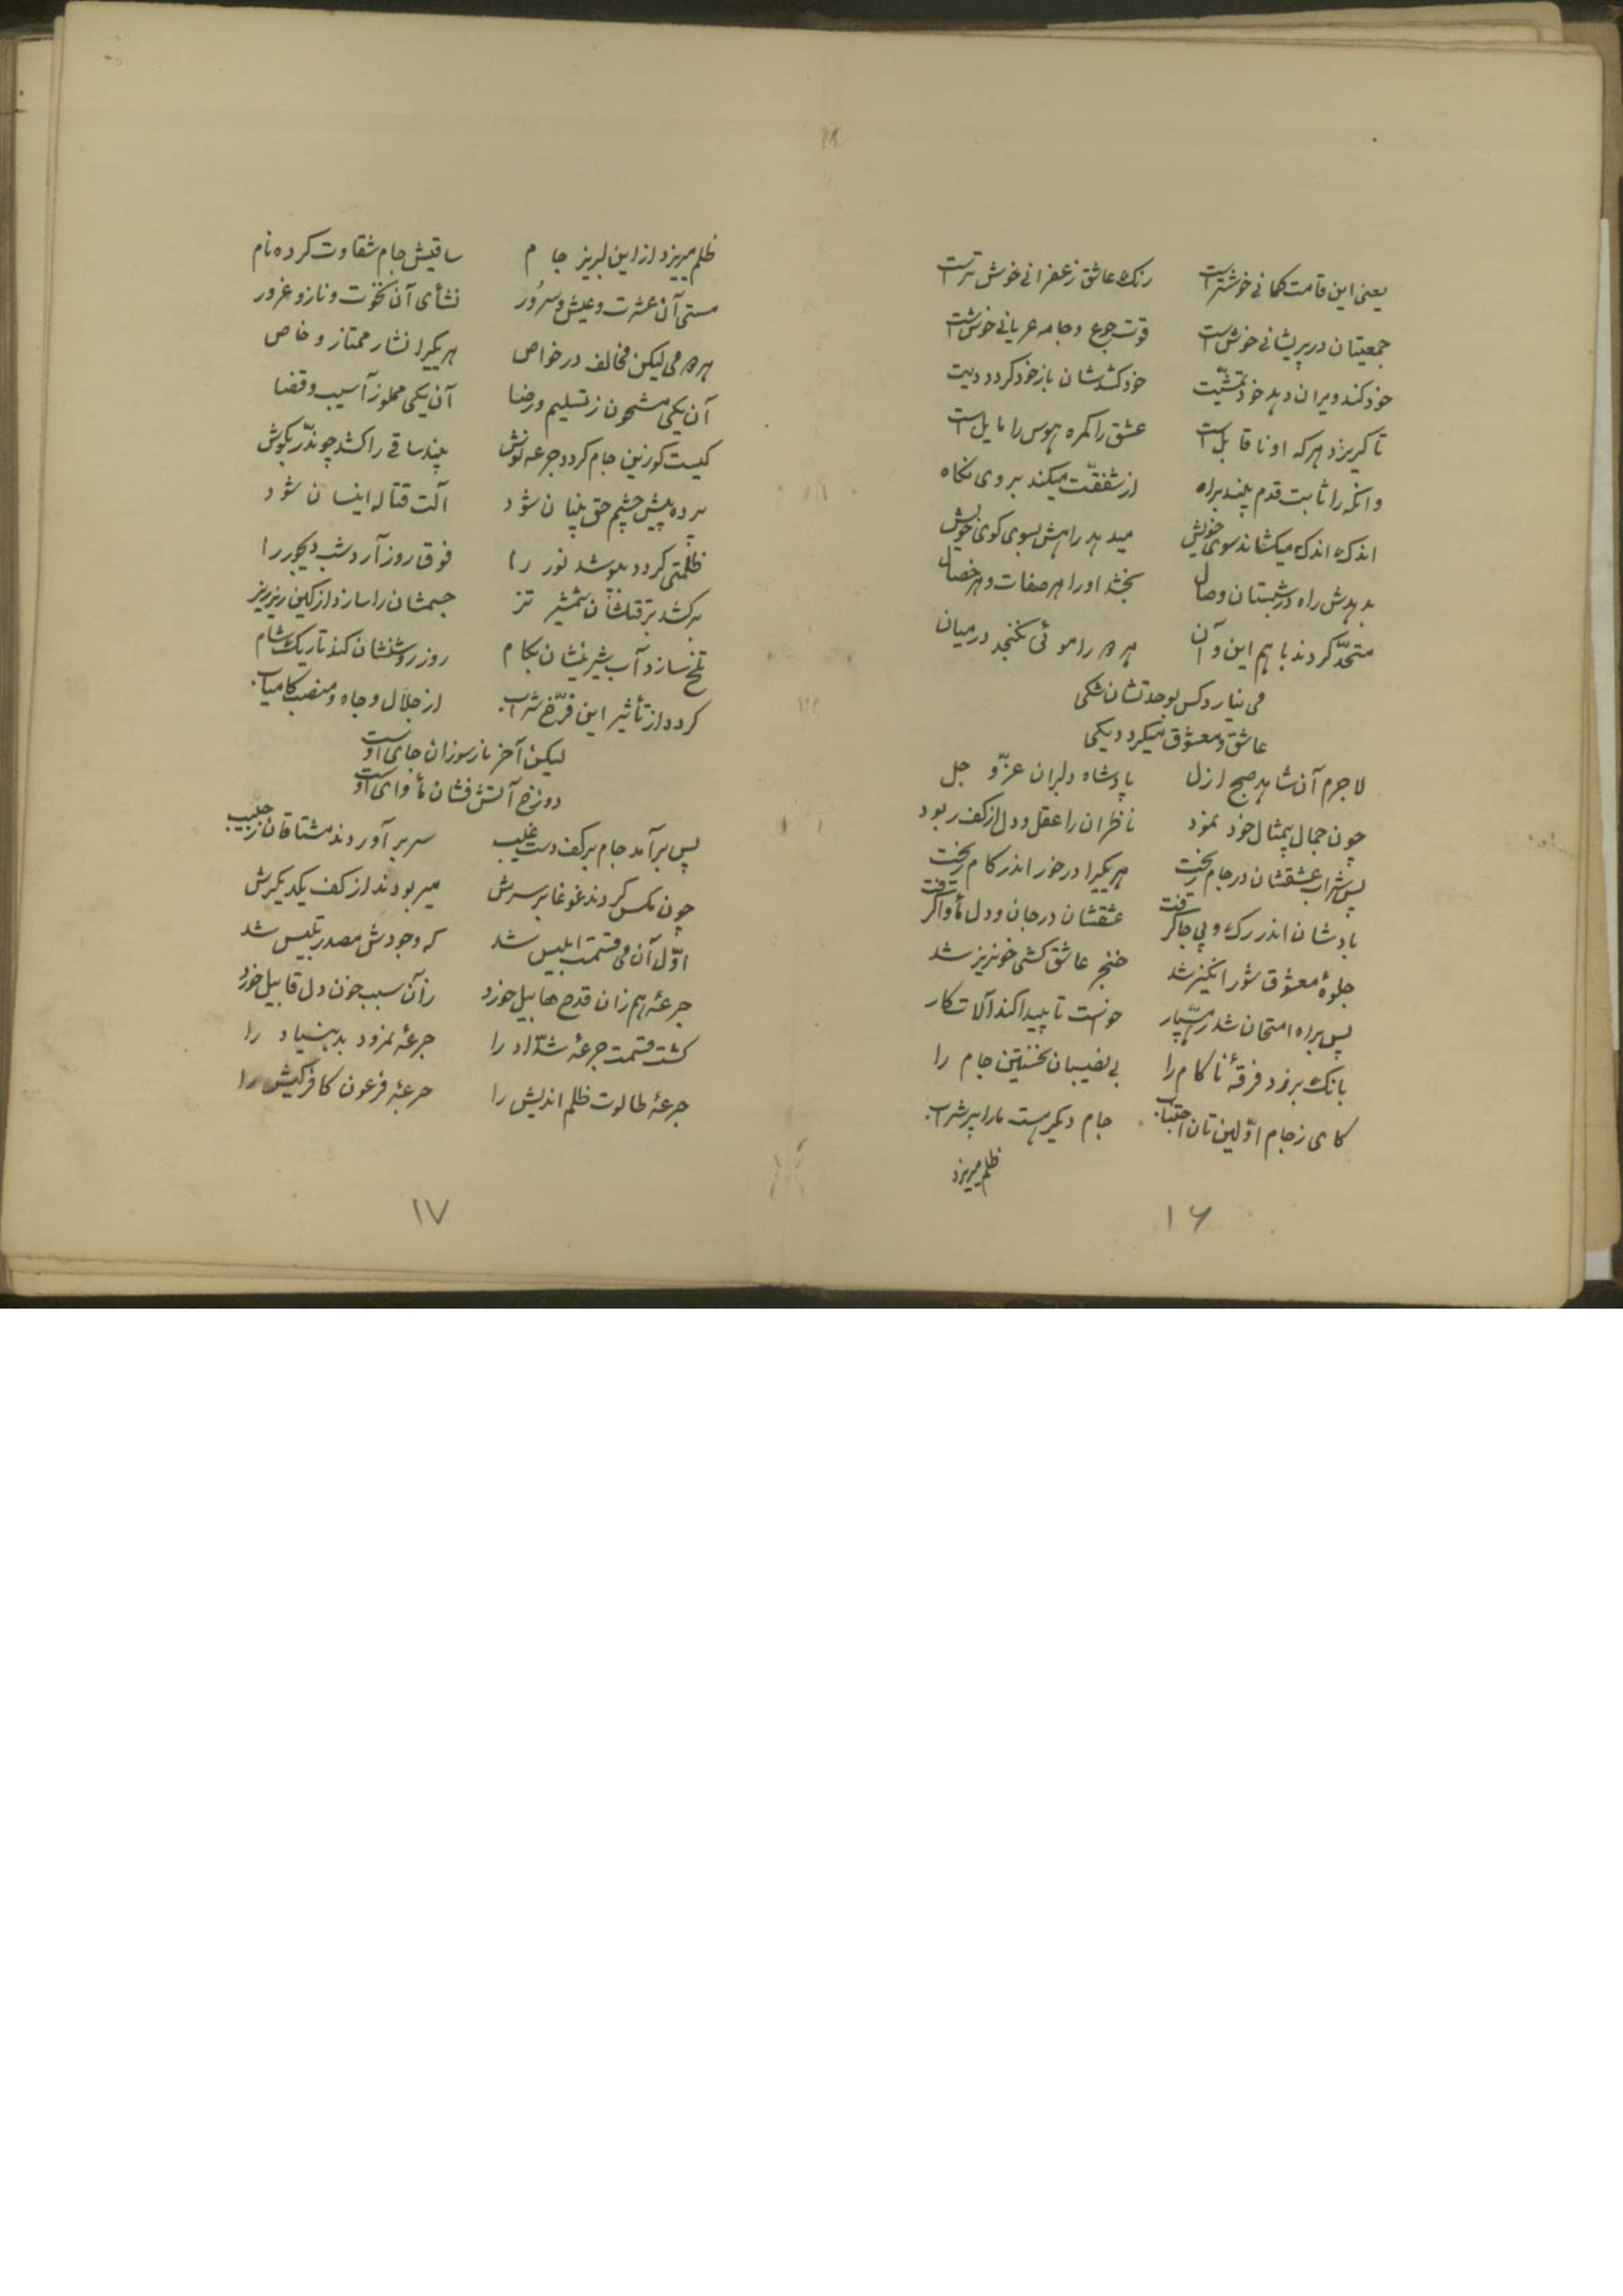 یعنی این قامت کمانی خوشتر است رنک عاشق زعفرانی خوش تر است
جمعیتان در پریشانی خوش است قوت جوع و جامه عریانی خوش است
خود کند ویران دهد خود تمشیت خود کشد شان باز خود کردد دیت
تا کریزد هر که او ناقابل است عشق را کمره هوس را مایل است
وانکه را ثابت قدم بیند براه از شفقّت میکند بروی نکاه
اندک اندک میکشاند سوی خویش میدهد راهش بسوی کوی خویش
بدهدش راه در شبستان وصال بخشد او را هر صفات و هر خصال
متحدّ کردند با هم این و آن هر دو را موئی نکنجد در میان
می نیارد کس بوحدتشان شکی
عاشق و معشوق میکردد یکی
لاجرم آن شاهد صبح ازل پادشاه دلبران عزّ و جل
چون جمال بیمثال خود نمود ناظران را عقل و دل از کف ربود
پس شراب عشقشان در جام ریخت هر یکیرا در خور اندر کام ریخت
بادشان اندر رک و پی جا کرفت عشقشان در جان و دل مأوا کرفت
جلوهٔ معشوق شور انکیز شد خنجر عاشق کشی خونریز شد
پس براه امتحان شد رهسپار خواست تا پیدا کند آلات کار
بانک برزد فرقهٔ ناکام را بی نصیبان نخستین جام را
کای ز جام اوّلین تان اجتناب جام دیکر هست ما را پر شراب
ظلم میریزد
۱۶
ظلم میریزد از این لبریز جام ساقیش جام شقاوت کرده نام
مستی آن عشرت و عیش و سرُور نشأی آن نخوت و ناز و غرور
هر دو می لیکن مخالف در خواص هر یکیرا نشار ممتاز و خاص
آن یکی مشحون ز تسلیم و رضا آن یکی مملو ز آسیب و قضا
کیست کو زین جام کردد جرعه نوش پند ساقی را کشد چون دّر بکوش
پرده پیش چشم حق بینان شود آلت قتاله اینسان شود
ظلمتی کردد بپوشد نور را فوق روز آرد شب دیجور را
برکشد بر قتلشان شمشیر تیز جسمشان را سازد از کین ریز ریز
تلخ سازد آب شیرینشان بکام روز روشنشان کند تاریک شام
کردد از تأثیر این فرّخ شراب از جلال و جاه و منصب کامیاب
لیکن آخر نار سوزان جای اوست
دوزخ آتش فشان مأوای اوست
پس برآمد جام بر کف دست غیب سر برآوردند مشتاقان ز جیب
چون مکس کردند غوغا بر سرش میربودند از کف یکدیکرش
اوّل آن می قسمت ابلیس شد که وجودش مصدر تلبیس شد
جرعهٔ هم زان قدح هابیل خورد زآن سبب خون دل قابیل خورد
کشت قسمت جرعهٔ شدّاد را جرعهٔ نمرود بد بنیاد را
جرعهٔ طالوت ظلم اندیش را جرعهٔ فرعون کافر کیش را
۱۷